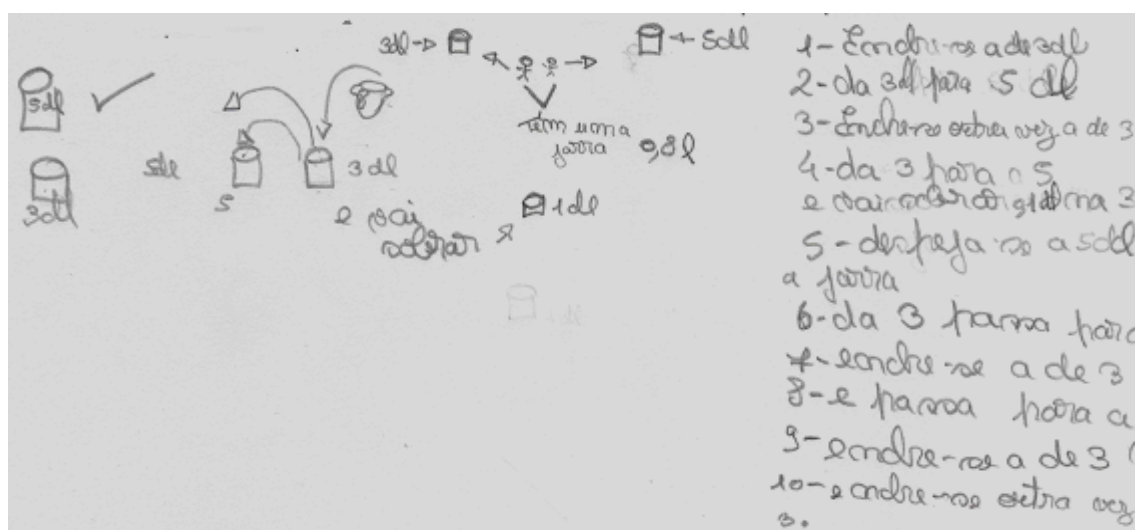 3dl
5dl
5dl
3dl
5dl
5
3dl
têm uma
jarra 0,8l
e vai
sobrar
1dl
1- Enche-se a de 3dl
2- da 3dl para 5 dl
3- Enche-se outra vez a de 3
4- da 3 para a 5
e vai sobrar 1dl na 3
5- despeja-se a 5dl
a jarra
6- da 3 passa para
7- enche-se a de 3
8- e passa para a
9- enche-se a de 3
10- e enche-se outra vez
3.